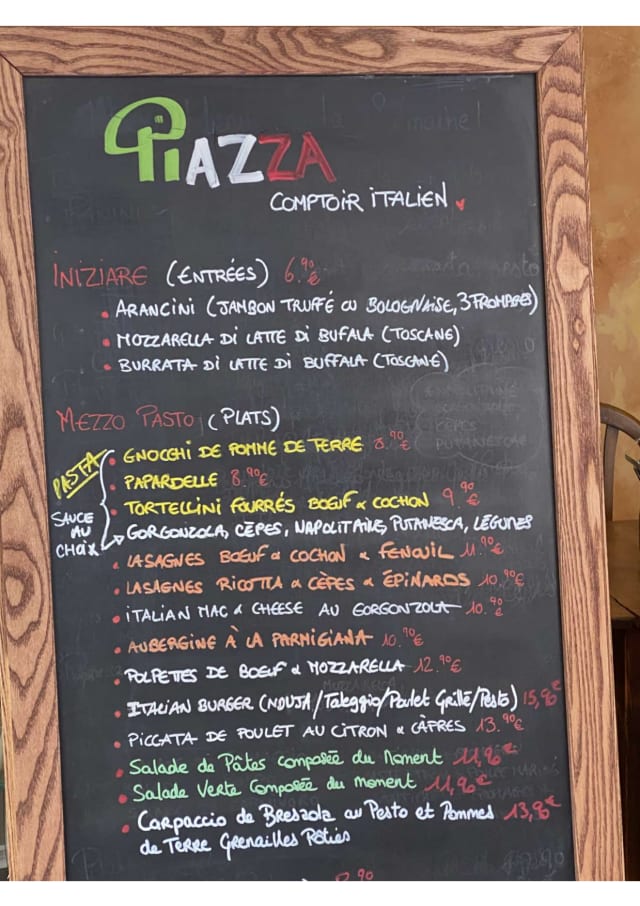 PIAZZA
COMPTOIR ITALIEN
INIZIARE (ENTRÉES) 6.90€
• ARANCINI (JAMBON TRUFFÉ OU BOLOGNAISE, 3 FROMAGES)
• MOZZARELLA DI LATTE DI BUFALA (TOSCANE)
• BURRATA DI LATTE DI BUFFALA (TOSCANE)
MEZZO PASTO (PLATS)
PASTA
• GNOCCHI DE POMME DE TERRE 8.90€
• PAPARDELLE 8.90€
• TORTELLINI FOURRÉS BOEUF & COCHON 9.90€
SAUCE AU CHOIX
GORGONZOLA, CÈPES, NAPOLITAINE, PUTANESCA, LÉGUMES
• LASAGNES BOEUF & COCHON & FENOUIL 11.90€
• LASAGNES RICOTTA & CÈPES & ÉPINARDS 10.90€
• ITALIAN MAC & CHEESE AU GORGONZOLA 10.90€
• AUBERGINE À LA PARMIGIANA 10.90€
• POLPETTES DE BOEUF & MOZZARELLA 12.90€
• ITALIAN BURGER (NDUJA/Taleggio/Poulet Grillé/Pesto) 15,90€
• PICCATA DE POULET AU CITRON & CÂPRES 13.90€
• Salade de Pâtes composée du Moment 11,90€
• Salade Verte Composée du moment 11,90€
• Carpaccio de Bresaola au Pesto et Pommes 13,90€
de Terre Grenailles Rôties